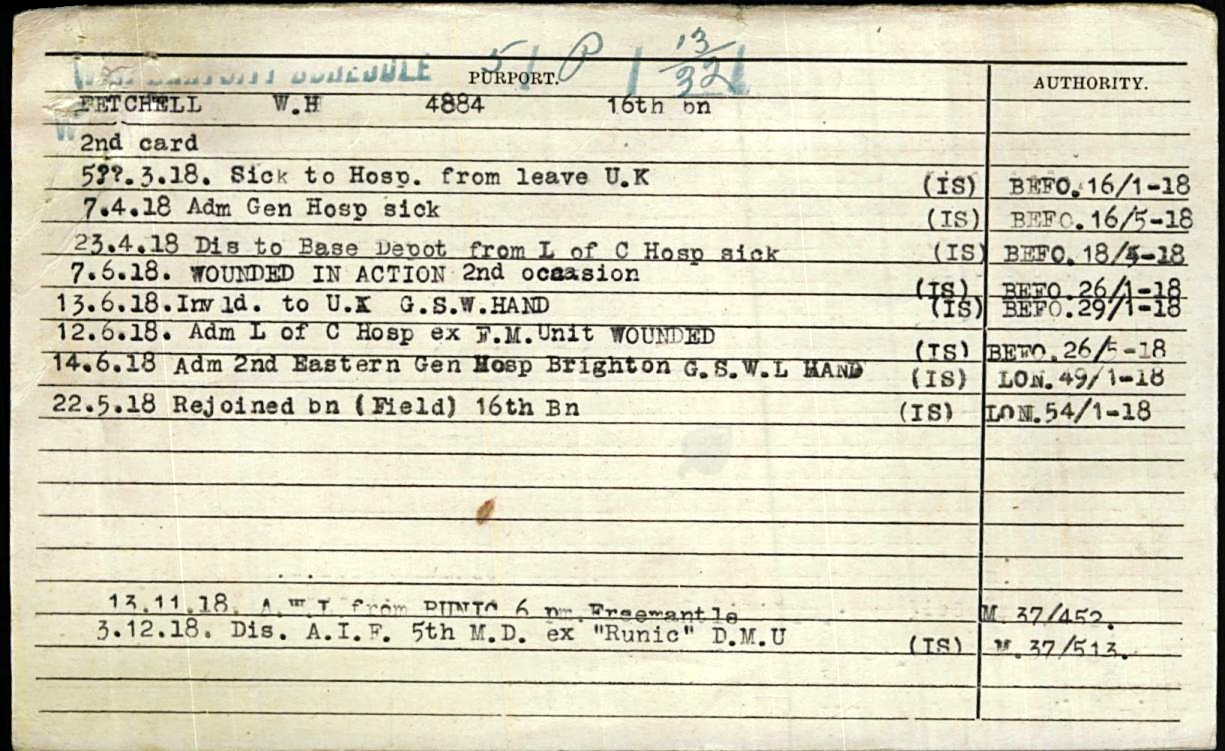 SCHEDULE 51 P 13/32
PURPORT. AUTHORITY.
PETCHELL W.H 4884 16th bn
2nd card
5??.3.18. Sick to Hosp. from leave U.K (IS) BEFO. 16/1-18
7.4.18 Adm Gen Hosp sick (IS) BEFO. 16/5-18
23.4.18 Dis to Base Depot from L of C Hosp sick (IS) BEFO. 18/-18
7.6.18. WOUNDED IN ACTION 2nd occasion (IS) BEFO. 26/1-18
13.6.18. Invld. to U.K G.S.W.HAND (IS) BEFO.29/1-18
12.6.18. Adm L of C Hosp ex F.M.Unit WOUNDED (IS) BEFO. 26/5-18
14.6.18 Adm 2nd Eastern Gen Hosp Brighton G.S.W.L HAND (IS) LON. 49/1-18
22.5.18 Rejoined bn (Field) 16th Bn (IS) LON.54/1-18
13.11.18. from RUNIC 6 pm. Freemantle M. 37/452.
3.12.18. Dis. A.I.F. 5th M.D. ex "Runic" D.M.U (IS) M. 37/513.